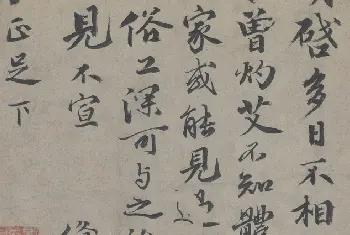 啓多日不相
曾灼艾不知體
家或能見
俗工深可与之
見不宣
正足下